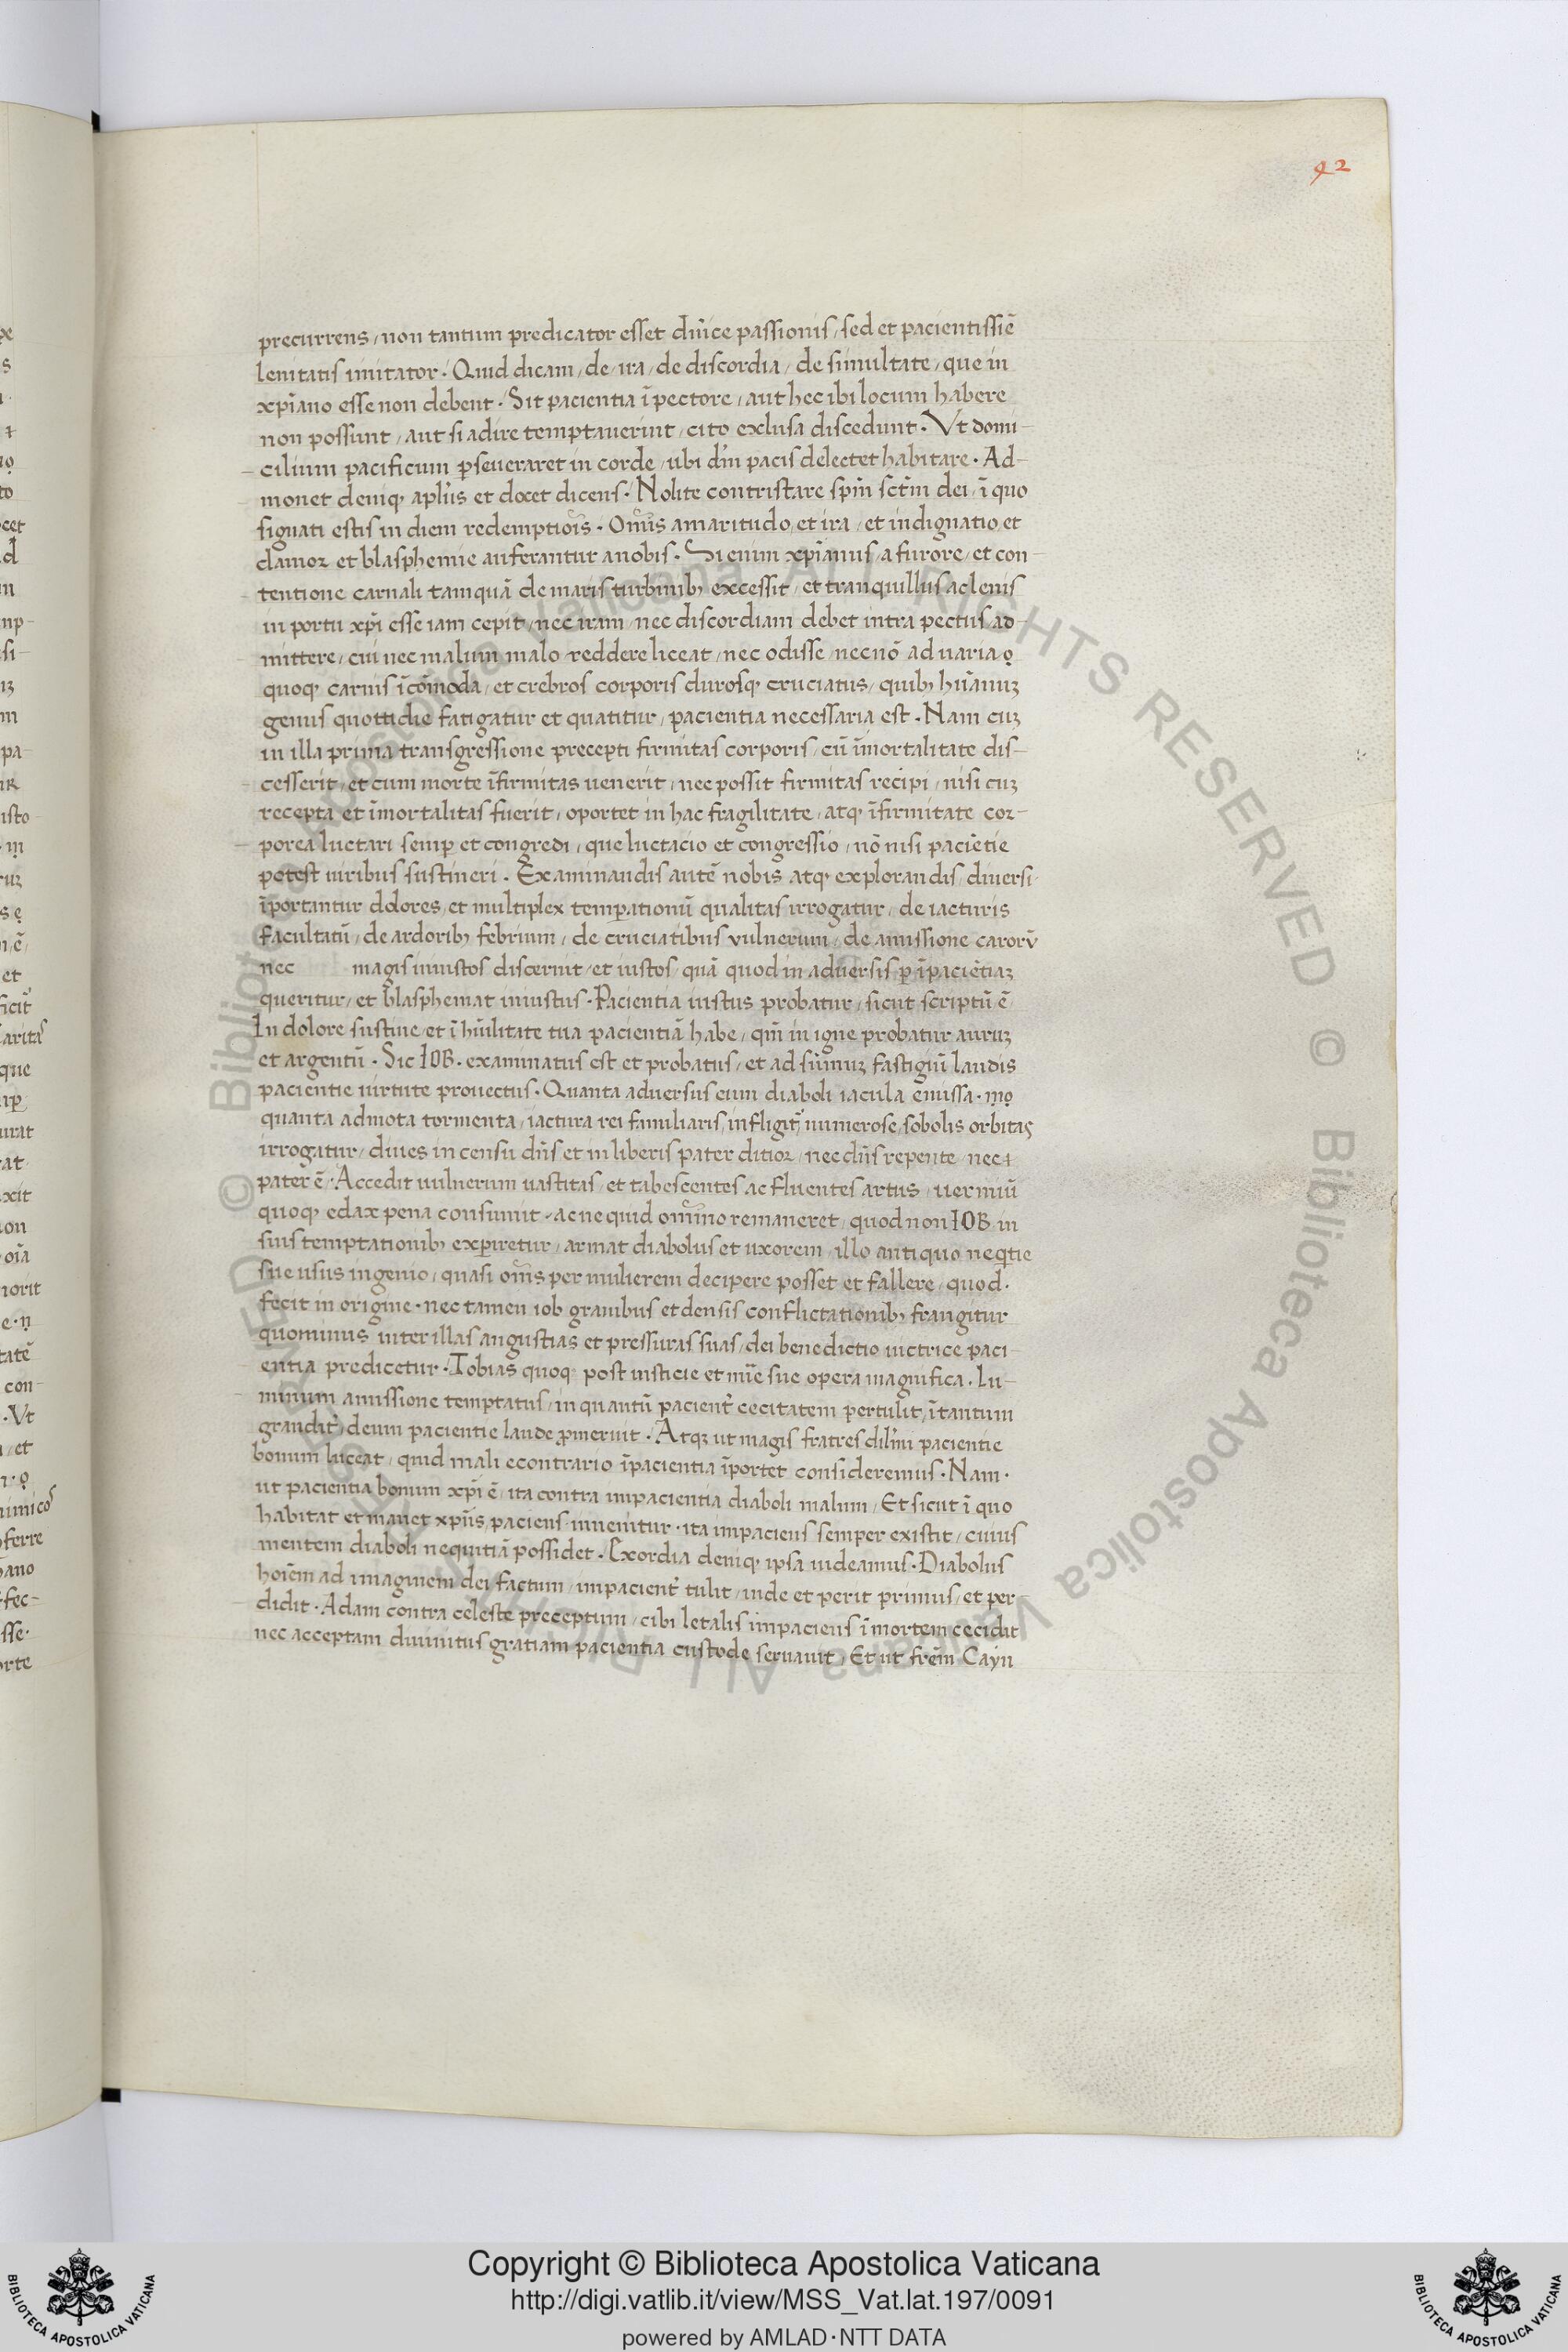 42
precurrens, non tantum predicator esset dn̄ice passionis, sed et pacientissiē
lenitatis imitator. Quid dicam, de, ira, de discordia, de simultate, que in
xp̄iano esse non debent. Sit pacientia ī pectore, aut hec ibi locum habere
non possunt, aut si adire temptaverint, cito exlusa discedunt. Vt domi-
cilium pacificum ꝑseueraret in corde, ubi dm̄ pacis delectet habitare. Ad-
monet deniqꝫ apl̄us et docet dicens. Nolite contristare spm̄ sctm̄ dei, ī quo
signati estis in diem redemptiōis. Om̄is amaritudo, et ira, et indignatio, et
clamor et blasphemie auferantur a nobis. Si enim xp̄ianus, a furore, et con-
tentione carnali tamquā de maris turbinibꝫ excessit, et tranquillus ac lenis
in portu xp̄i esse iam cepit, nec iram, nec discordiam debet intra pectus ad-
mittere, cui nec malum malo, reddere liceat, nec odisse, nec nō ad uaria
quoqꝫ carnis īcōmoda, et crebros corporis durosqꝫ cruciatus, quibꝫ hūanuꝫ
genus quottidie fatigatur et quatitur, pacientia necessaria est. Nam cuꝫ
in illa prima transgressione precepti firmitas corporis, cū īmortalitate dis-
cesserit, et cum morte īfirmitas uenerit, nec possit firmitas recipi, nisi cuꝫ
recepta et īmortalitas fuerit, oportet in hac fragilitate, atqꝫ īfirmitate cor-
porea luctari semꝑ et congredi, que luctacio et congressio, nō nisi paciētie
potest uiribus sustineri. Examinandis autē nobis atqꝫ explorandis, diuersi
īportantur dolores, et multiplex temptationū qualitas irrogatur, de iacturis
facultatū, de ardoribꝫ febrium, de cruciatibus vulnerum, de amissione carorū
nec magis iniustos discernit, et iustos, quā quod in adversis ꝑ īpaciētiaꝫ
queritur, et blasphemat iniustus. Pacientia iustus probatur, sicut scriptū ē
In dolore sustine, et ī hūilitate tua pacientiā habe, qm̄ in igne probatur auruꝫ
et argentū. Sic IOB. examinatus est et probatus, et ad sūmuꝫ fastigiū laudis
pacientie uirtute prouectus. Quanta adversus eum diaboli iacula ēmissa.
quanta admota tormenta, iactura rei familiaris, infligit᷑ numerose, sobolis orbitas
irrogatur, diues in censu dn̄s et in liberis pater ditior, nec dn̄s repente, nec
pater ē. Accedit vulnerum uastitas, et tabescentes ac fluentes artus, uermiū
quoqꝫ edax pena consumit. ac ne quid om̄ino remaneret, quod non IOB in
suis temptationibꝫ experiretur, armat diabolus et uxorem, illo antiquo neqtie
sue usus ingenio, quasi om̄s per mulierem decipere posset et fallere, quod.
fecit in origine. nec tamen iob grauibus et densis conflictationibꝫ frangitur
quominus inter illas angustias et pressuras suas, dei benedictio uictrice paci-
entia predicetur. Tobias quoqꝫ post iusticie et mīe sue opera magnifica. Lu-
minum amissione temptatus, in quantū pacient᷑ cecitatem pertulit, ītantum
grandit᷑, deum pacientie laude ꝓmeruit. Atqꝫ ut magis fratres dilm̄i pacientie
bonum luceat, quid mali econtrario īpacientia īportet consideremus. Nam.
ut pacientia bonum xp̄i ē, ita contra impacientia diaboli malum, Et sicut ī quo
habitat et manet xp̄us, paciens inuenitur. ita impaciens semper existit, cuius
mentem diaboli nequitiā possidet. Exordia deniqꝫ ipsa uideamus. Diabolus
hoīem ad imaginem dei factum, impacient᷑ tulit, inde et perit primus, et per-
didit. Adam contra celeste preceptum, cibi letalis impaciens ī mortem cecidit
nec acceptam diuinitus gratiam pacientia custode seruauit, Et ut frēm Cayn
Copyright © Biblioteca Apostolica Vaticana
http://digi.vatlib.it/view/MSS_Vat.lat.197/0091
powered by AMLAD·NTT DATA
BIBLIOTECA APOSTOLICA VATICANA
BIBLIOTECA APOSTOLICA VATICANA
© Biblioteca Apostolica Vaticana ALL RIGHTS RESERVED © Biblioteca Apostolica Vaticana ALL RIGHTS RESERVED